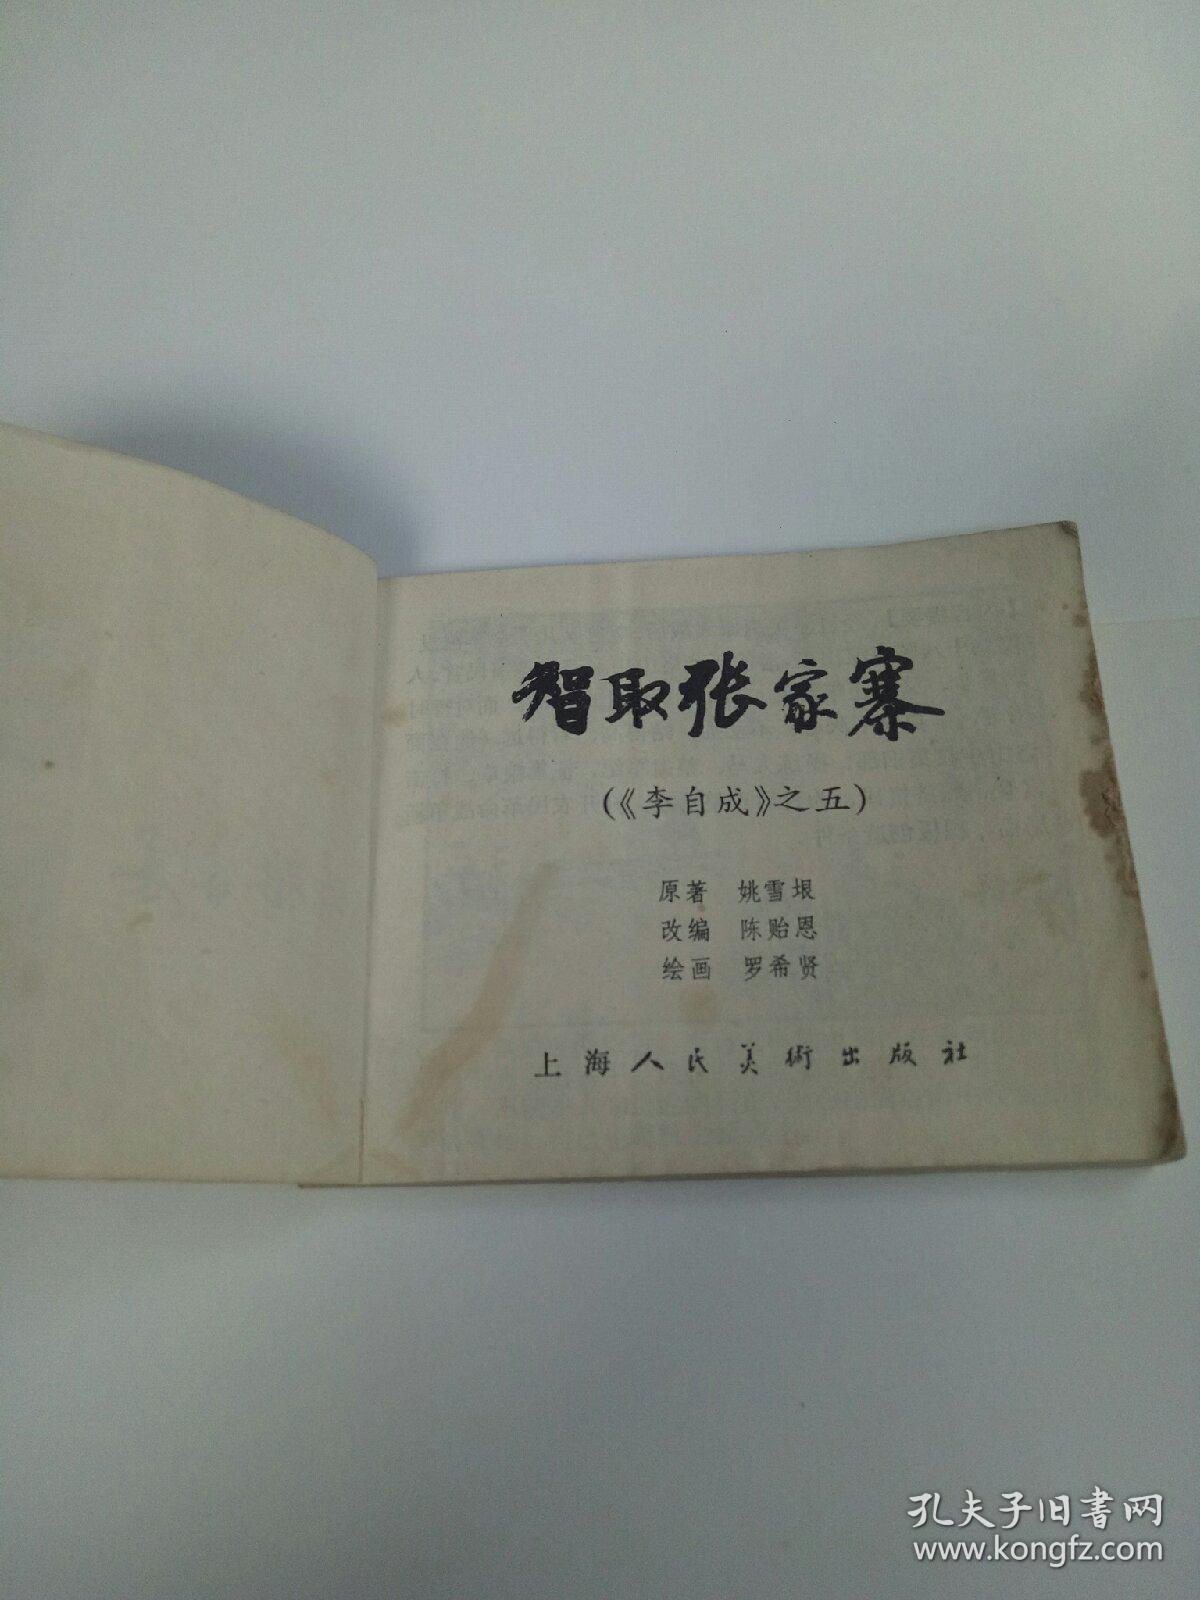 智取张家寨
(《李自成》之五)
原著 姚雪垠
改编 陈贻恩
绘画 罗希贤
上海人民美術出版社
孔夫子旧书网
www.kongfz.com